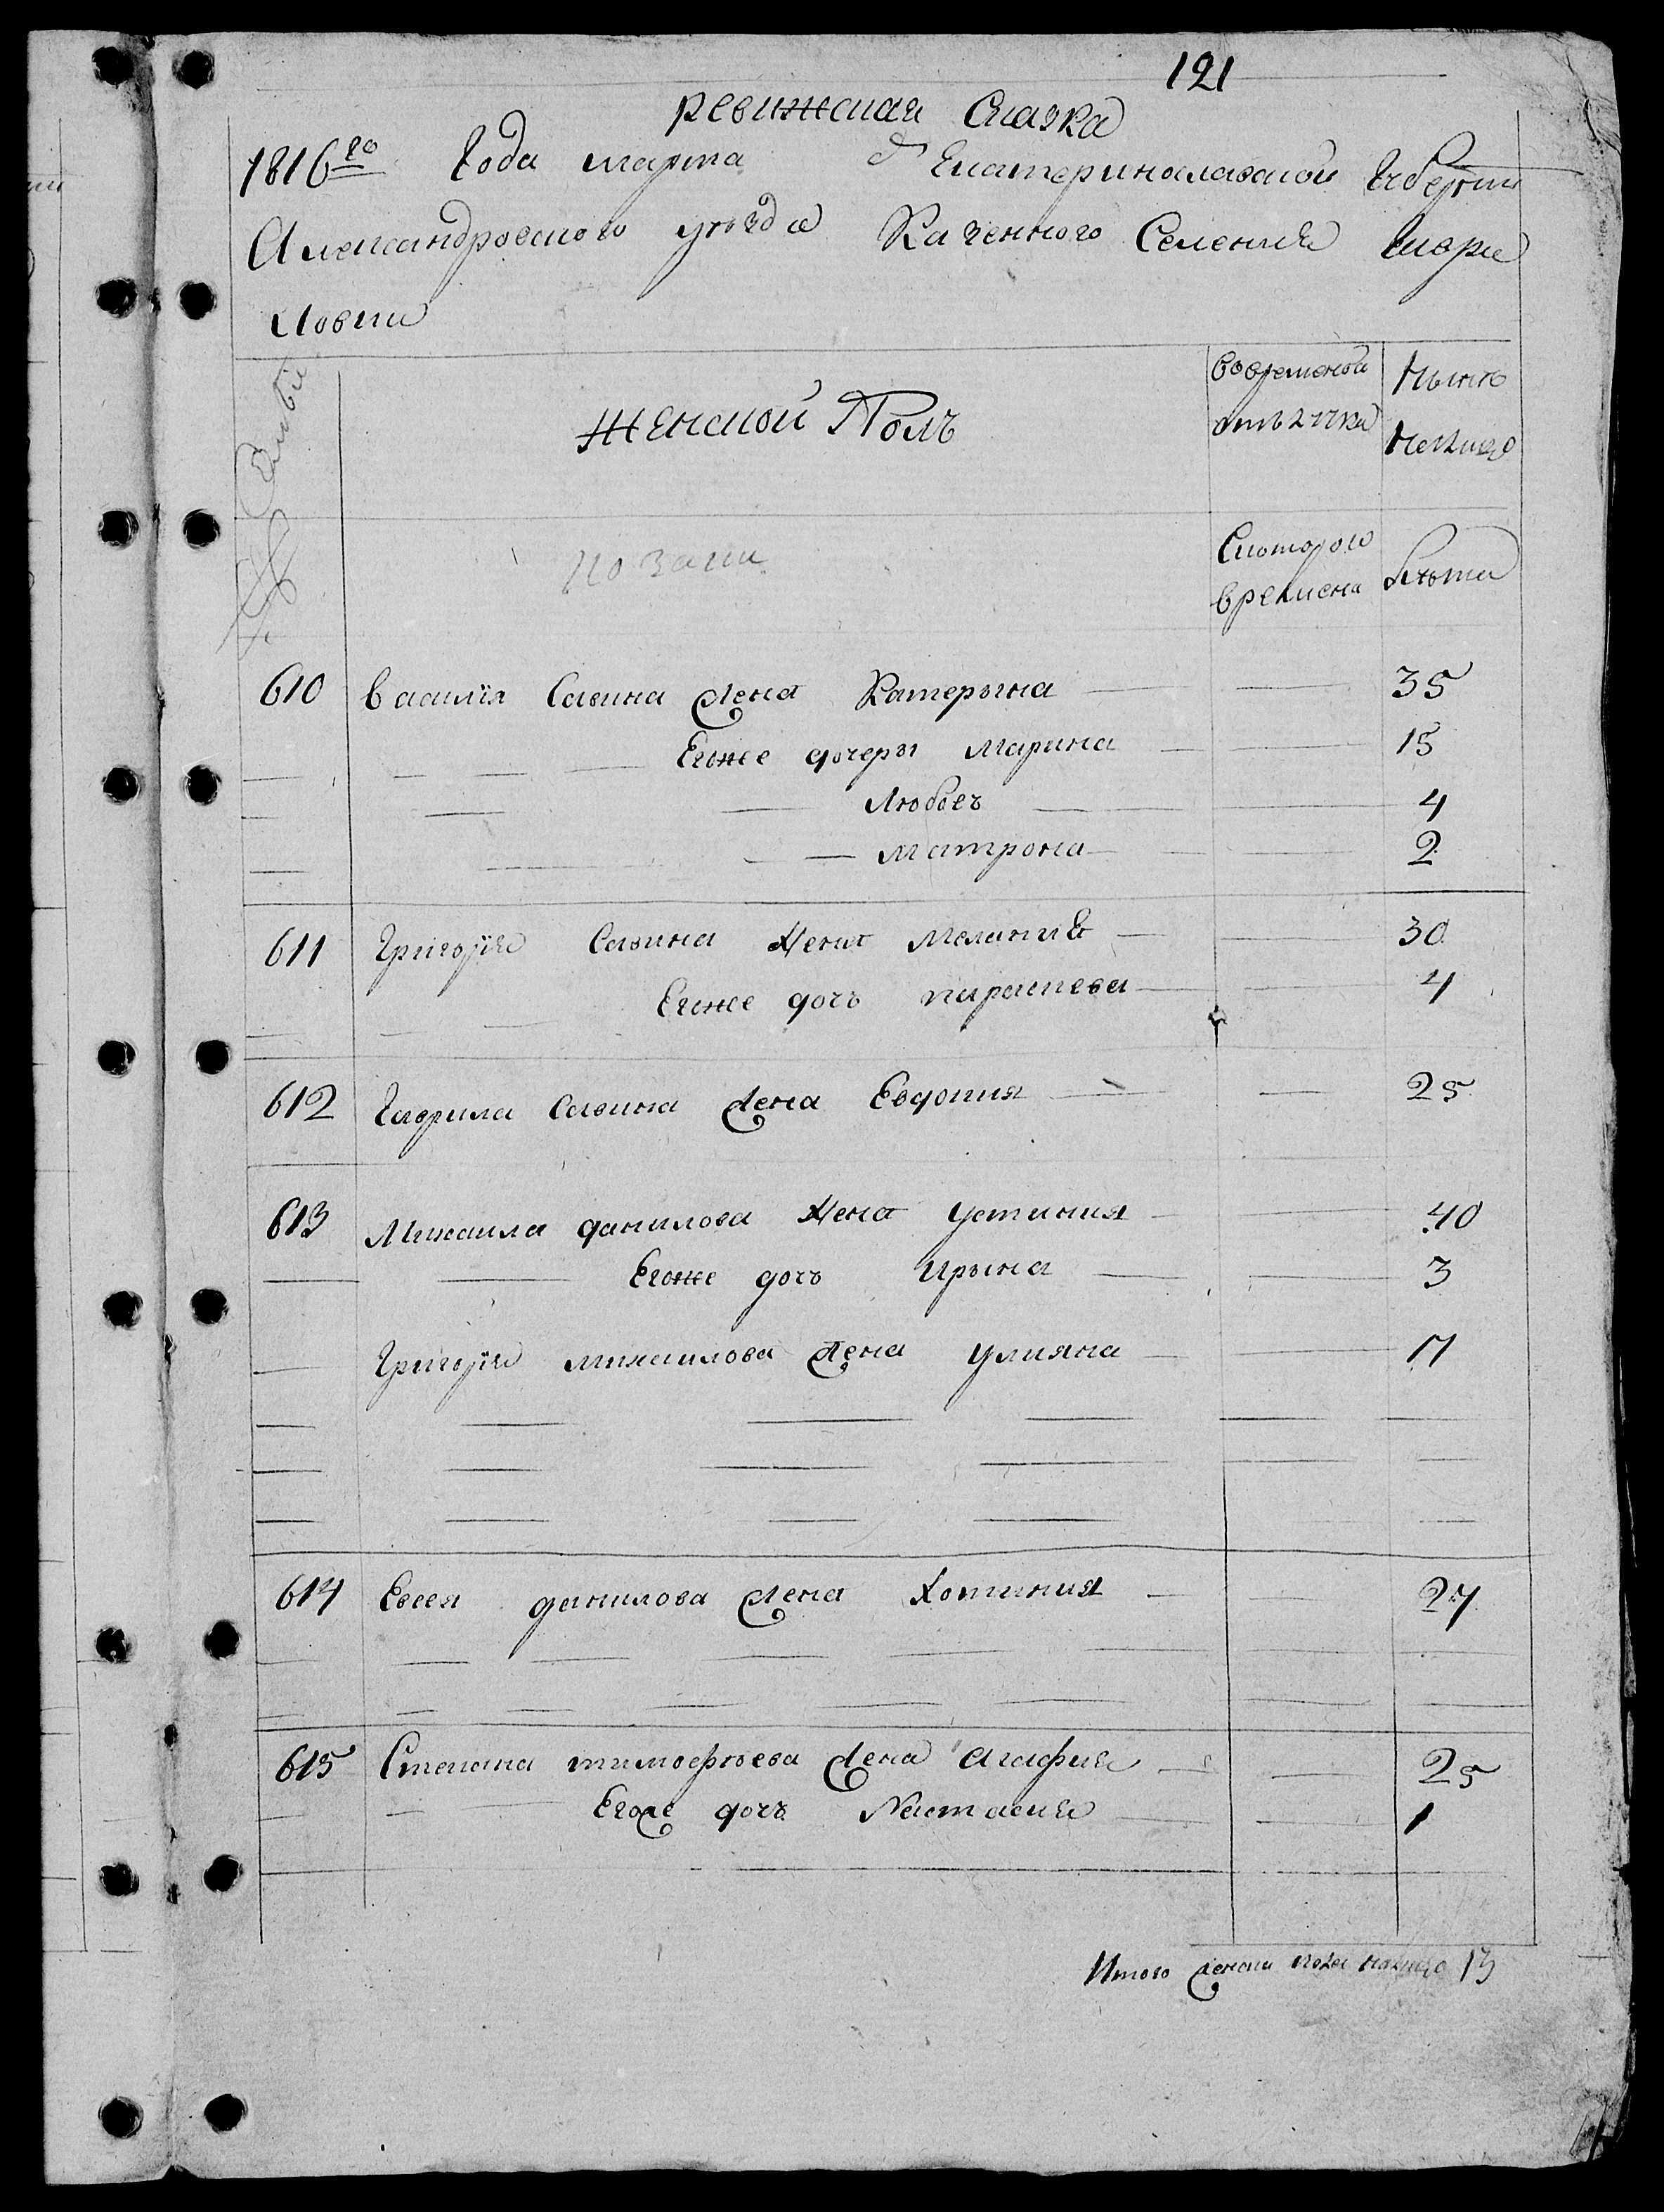 121
ревижская Сказка
1816го Года марта д Екатеринославской Губернии
Александровского уъзда Казенного Селения Шары
ловки
Семьи
Женской Полъ
Вовременой
отлучки
Нынѣ
Налицо
Козаки
Скоторого
времена
Лѣта
610 Василія Савина жена Катерына 35
Егоже дочеры Марина 15
Любовъ 4
Матрона 2
611 Григорія Савина жена Мелания 30
Егоже дочъ параскева 4
612 Гаврила Савина жена Евдокия 25
613 Михаила данилова жена Устиния 40
Егоже дочъ Ирына 3
Григорія михаилова жена улияна 17
614 Евсея данилова жена Хотиния 27
615 Степана тимофѣева жена Агафия 25
Егоже дочъ Настасия 1
Итого женска пола налицо 13